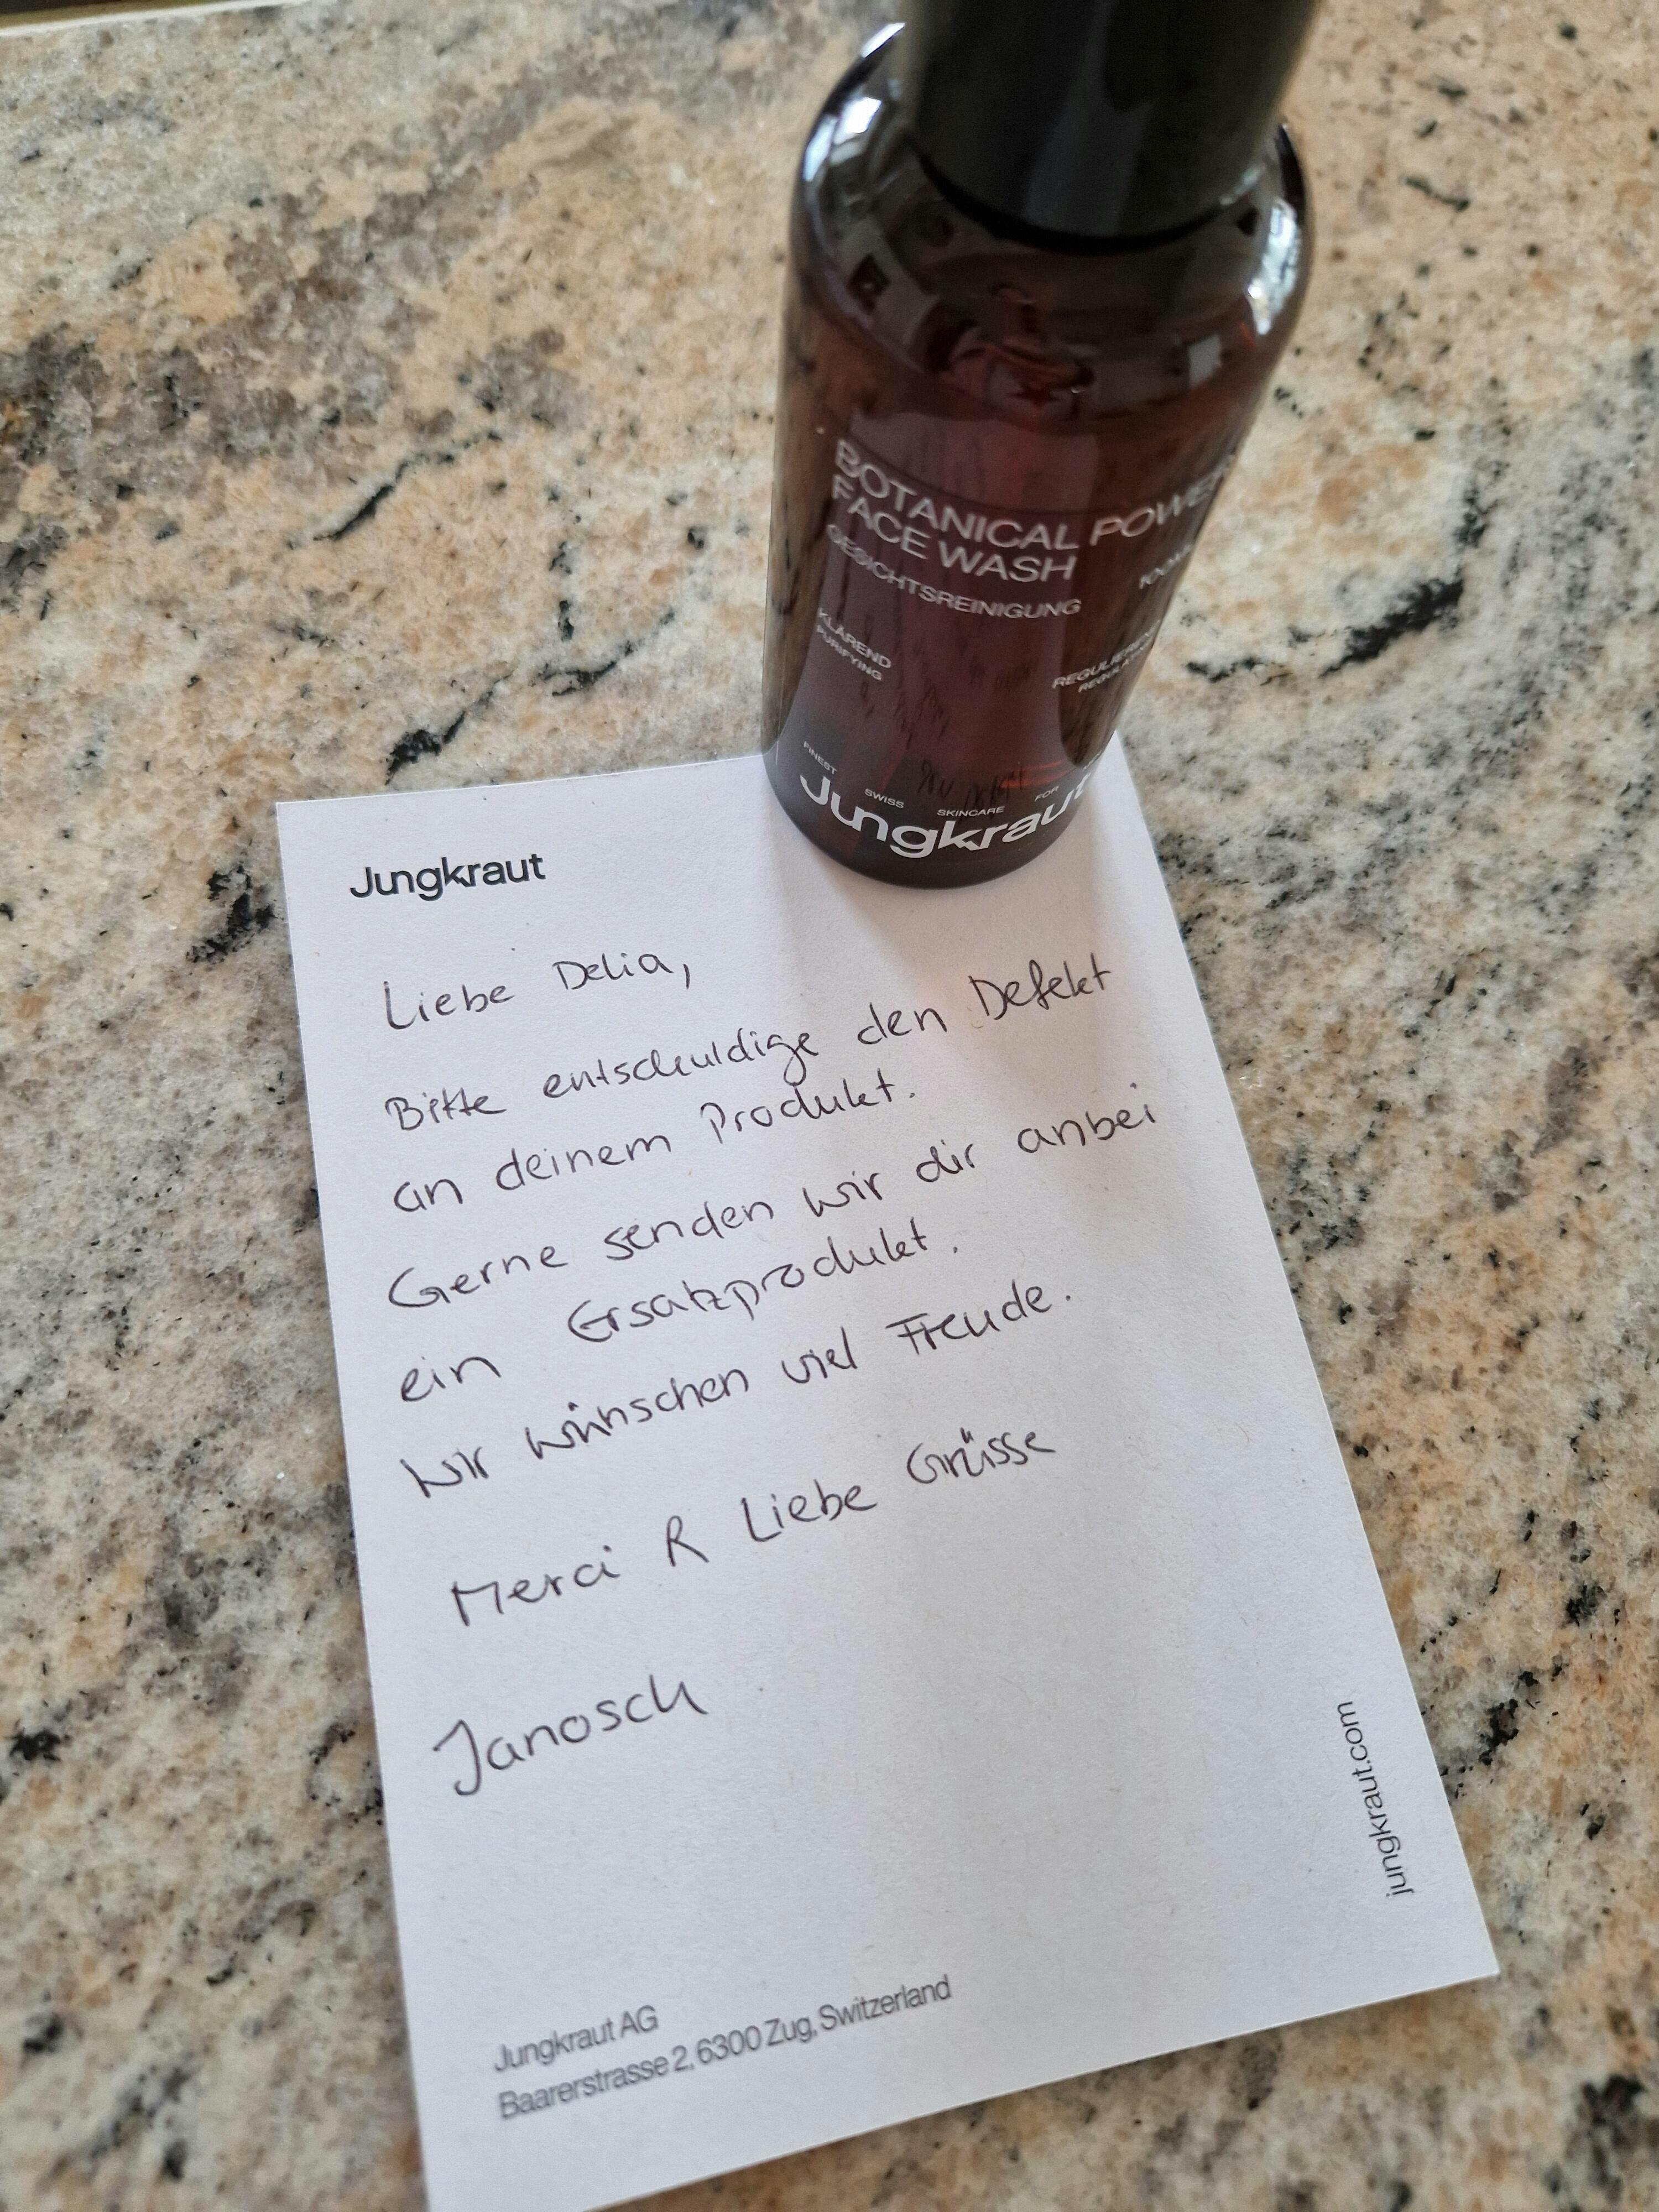 BOTANICAL POWER
FACE WASH
GESICHTSREINIGUNG
KLÄREND
PURIFYING
FINEST SWISS SKINCARE FOR
Jungkraut
Jungkraut
Liebe Delia,
Bitte entschuldige den Defekt
an deinem Produkt.
Gerne senden wir dir anbei
ein Ersatzprodukt.
Wir wünschen viel Freude.
Merci & Liebe Grüsse
Janosch
jungkraut.com
Jungkraut AG
Baarerstrasse 2, 6300 Zug, Switzerland